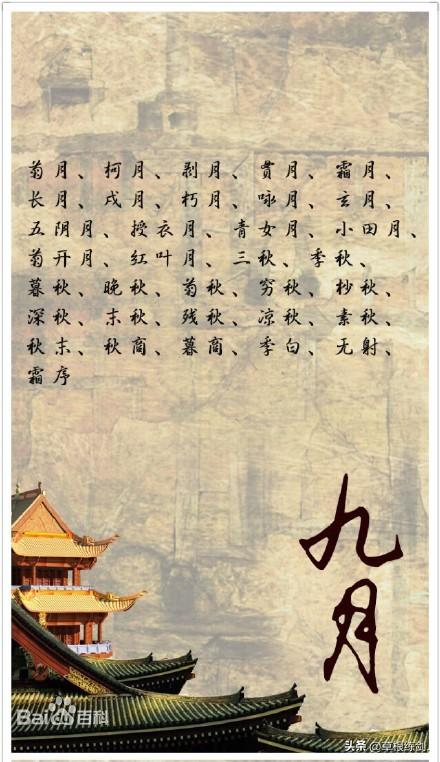 菊月、柯月、剥月、贯月、霜月、
长月、戌月、朽月、咏月、玄月、
五阴月、授衣月、青女月、小田月、
菊开月、红叶月、三秋、季秋、
暮秋、晚秋、菊秋、穷秋、杪秋、
深秋、末秋、残秋、凉秋、素秋、
秋末、秋商、暮商、季白、无射、
霜序
九月
Bai百科
头条 @草根练剑